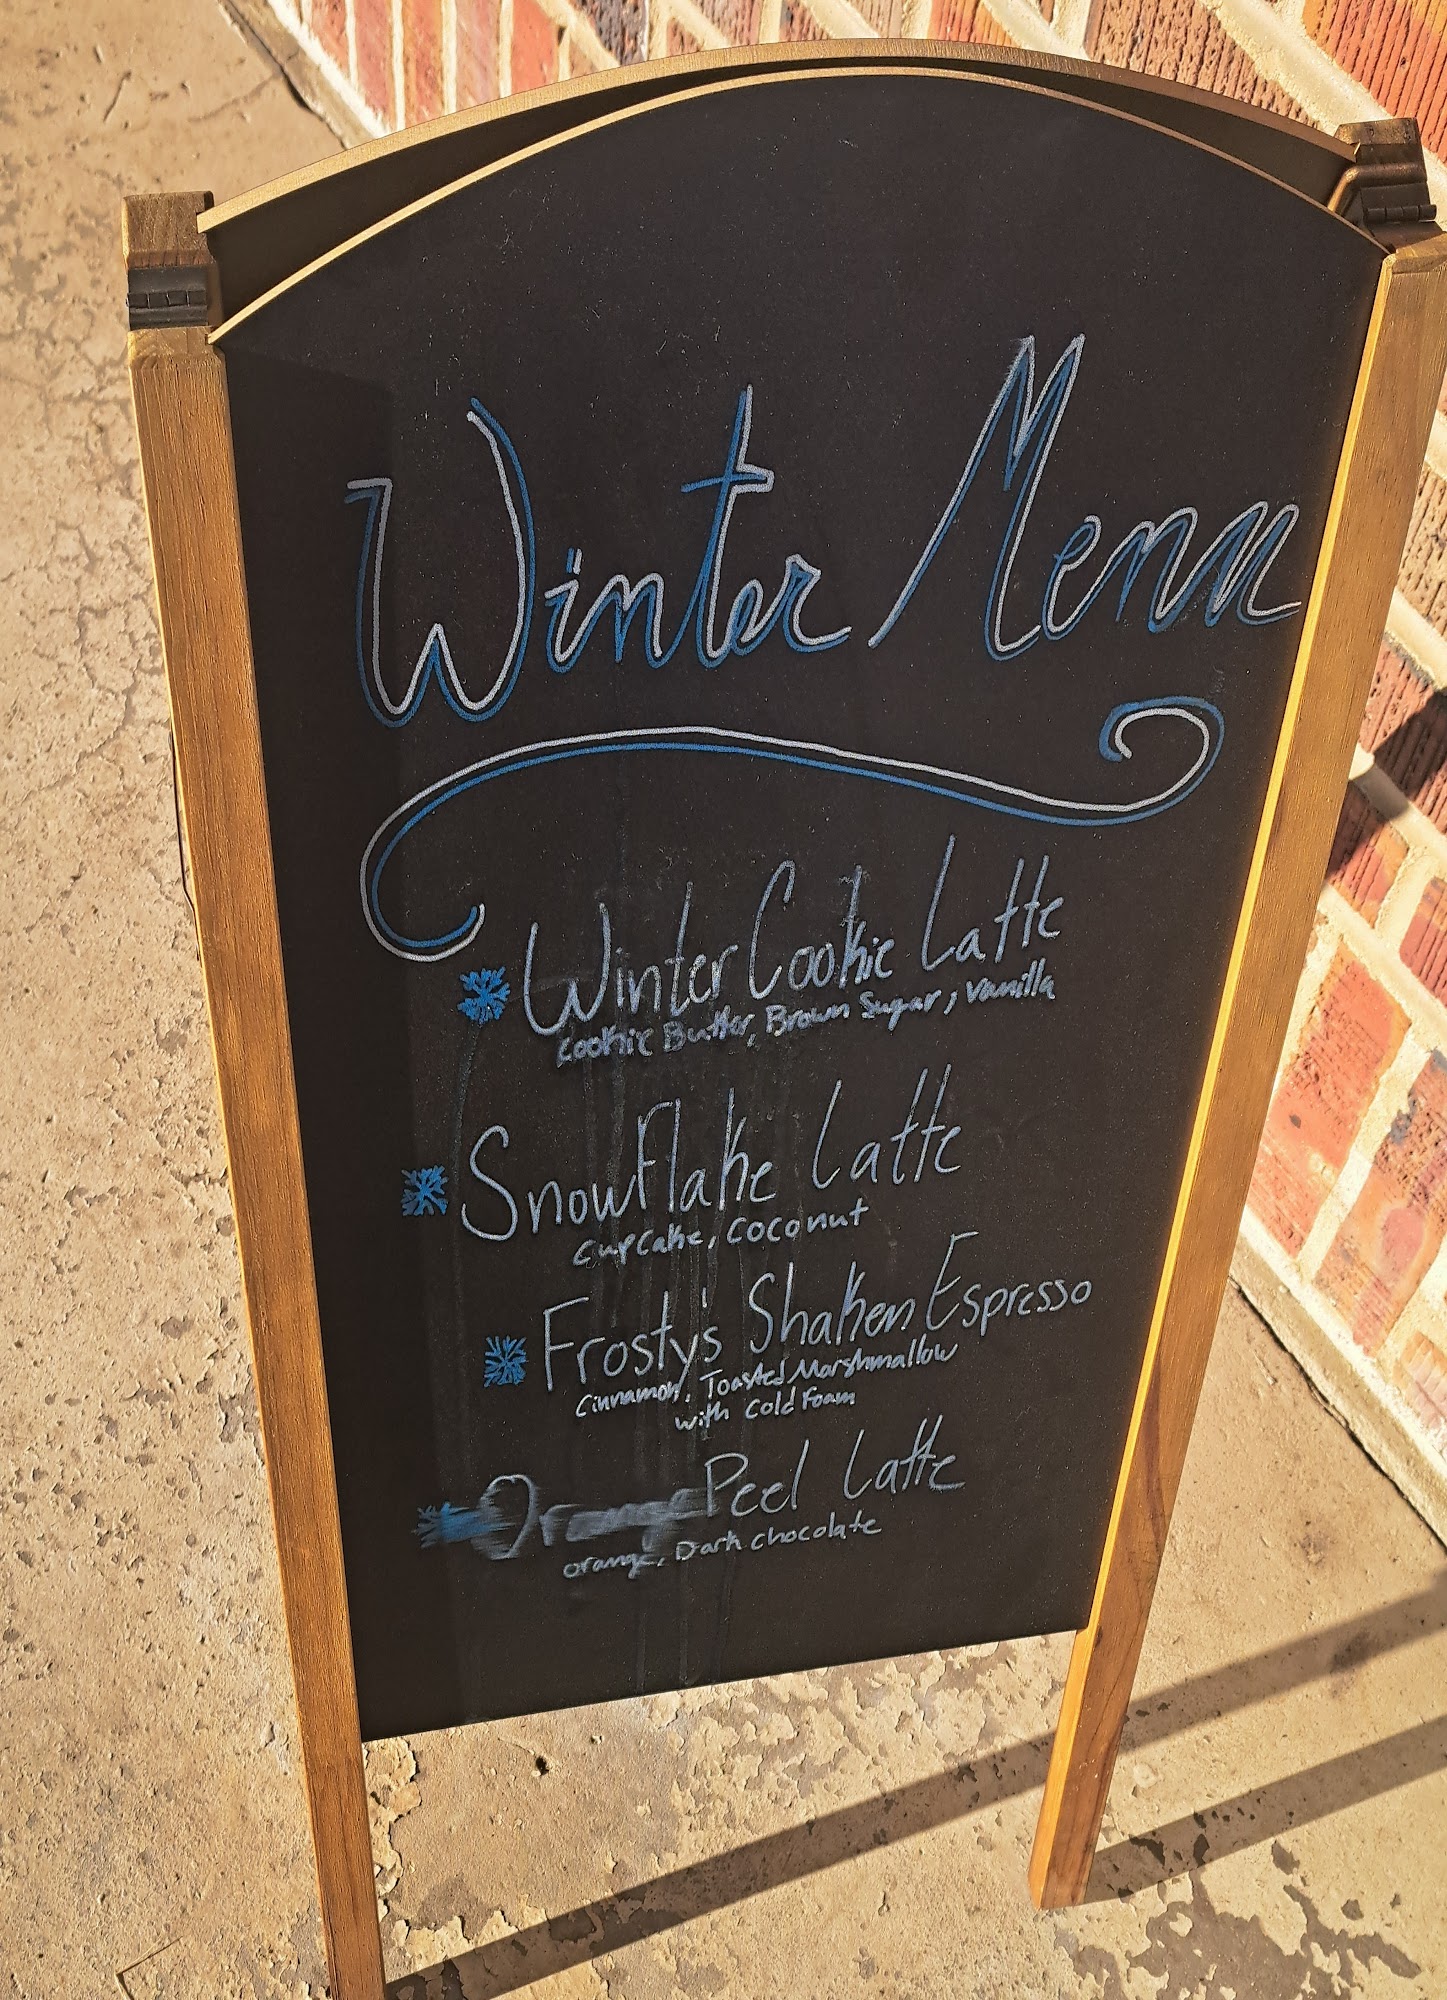 Winter Menu
Winter Cookie Latte
Cookie Butter, Brown Sugar, Vanilla
Snowflake Latte
Cupcake, Coconut
Frosty's Shaken Espresso
Cinnamon, Toasted Marshmallow
with Cold Foam
Orange Peel Latte
Orange, Dark Chocolate